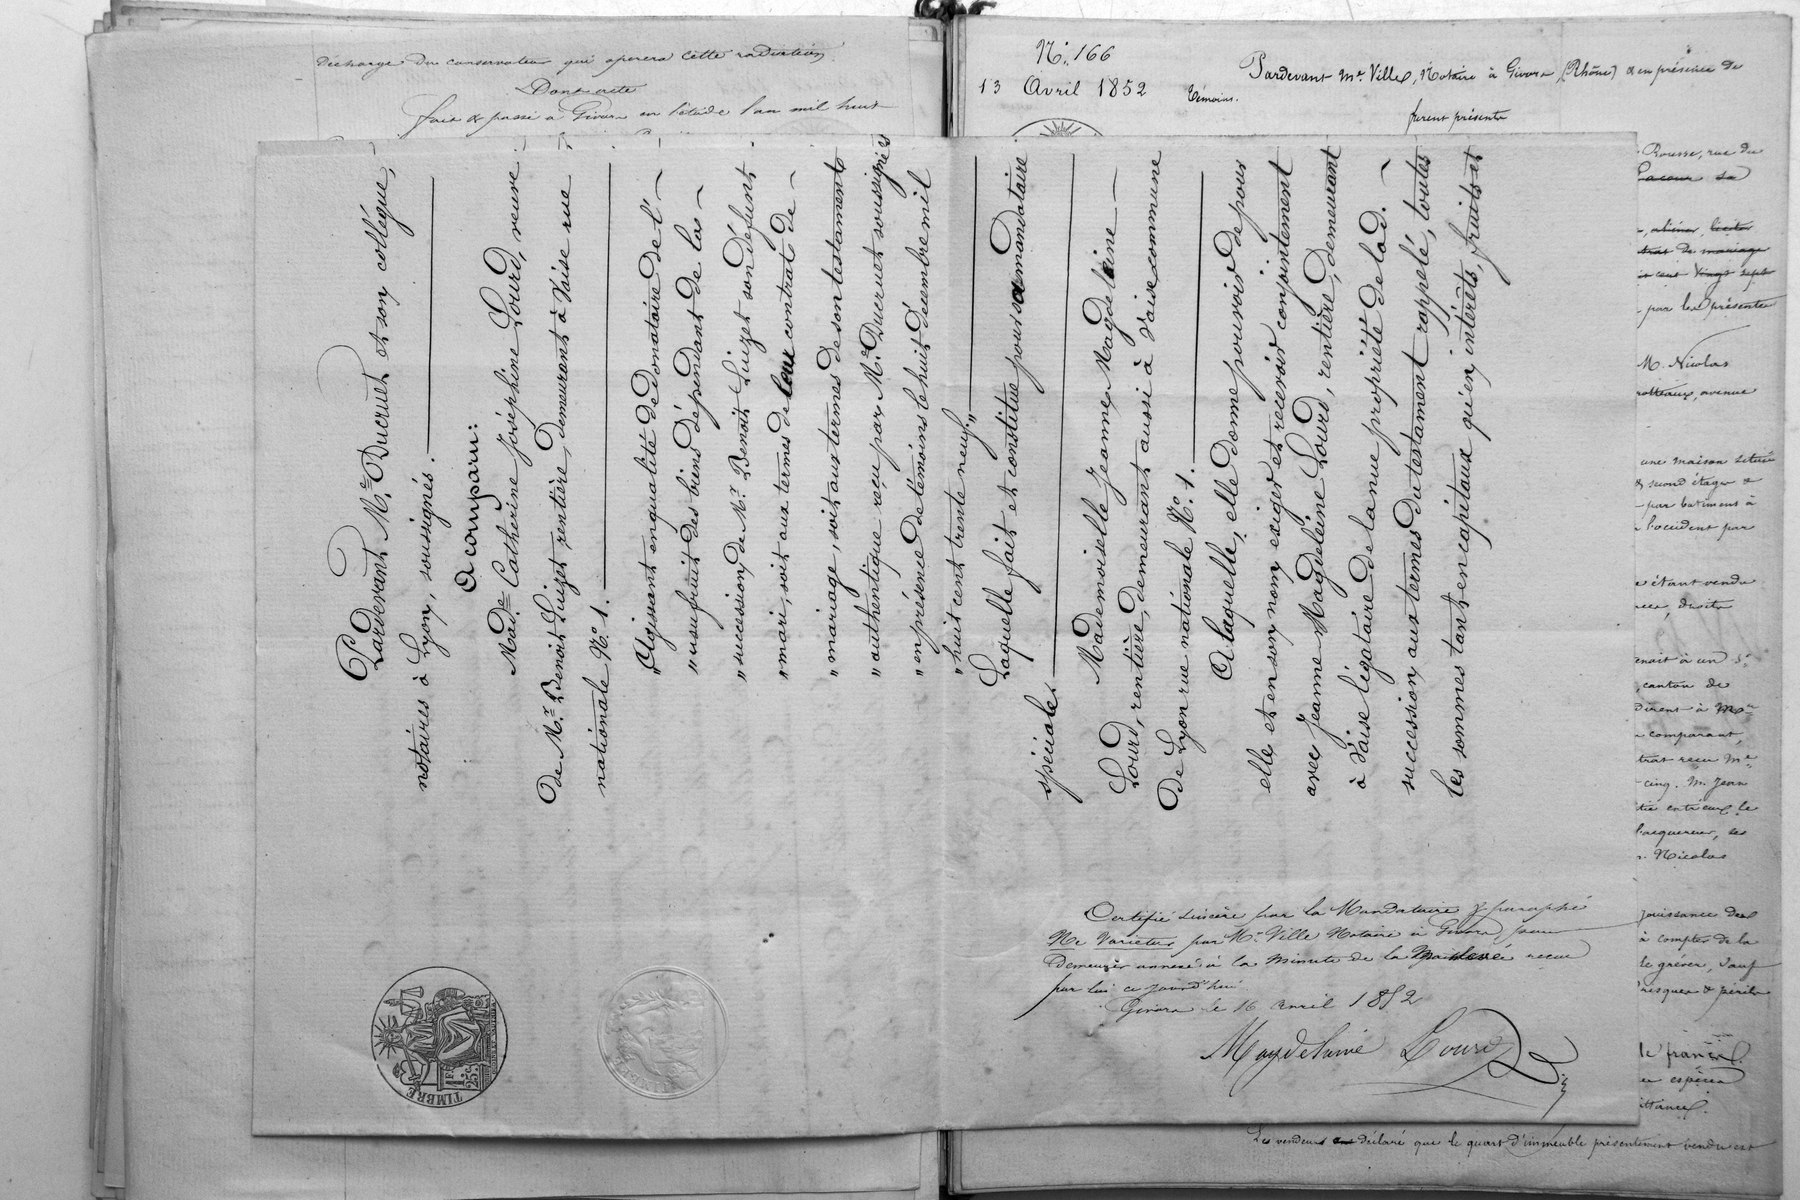 décharge du conservateur qui opérera cette radiation.
Dont acte
fait & passé à Givors en l'étude l'an mil huit
N.º 166
13 Avril 1852
Pardevant Mᵉ. Ville, Notaire à Givors (Rhône) & en présence de
témoins.
furent présents
Pardevant Mᵉ. Ducruet et son collègue,
notaires à Lyon, soussignés.
A comparu:
Madᵉ Catherine Joséphine Lourd, veuve
de Mʳ. Benoît Luizet, rentière, demeurant à Vaise rue
nationale N.º 1.
"Agissant en qualité de donataire de l'
"usufruit des biens dépendant de la s
"succession de Mʳ. Benoît Luizet son défunt
"mari, soit aux termes de leur contrat de
"mariage, soit aux termes de son testament
"authentique reçu par Mᵉ. Ducruet soussigné
"en présence de témoins le huit décembre mil
"huit cent trente neuf."
Laquelle fait et constitue pour sa mandataire
spéciale
Mademoiselle Jeanne Magdeleine
Lourd, rentière, demeurant aussi à Vaise commune
de Lyon rue nationale N.º 1.
A laquelle, elle donne pouvoir de pour
elle et en son nom exiger et recevoir conjointement
avec Jeanne Magdeleine Lourd, rentière, demeurant
à Vaise légataire de la nue propriété de lad.
succession, aux termes du testament rappelé, toutes
les sommes tant en capitaux qu'en intérêts, fruits et
Certifié sincère par la Mandataire & paraphé
Ne Varietur par Mᵉ. Ville Notaire à Givors, pour
demeurer annexé à la minute de la reçue
par lui ce jourd'hui
Givors le 16 avril 1852
Magdelaine Lourd
TIMBRE
1 Fᶜ 25 ᶜ
Rousse, rue du
par les présentes
M. Nicolas
avenue
une maison située
second étage &
par batiment à
l'occident par
étant vendu
droits
canton de
comparant,
reçu Mᵉ
cinq. M. Jean
l'acquéreur, ses
Nicolas
jouissance des
à compter de la
le gréver, sauf
risques & périls
francs.
espèces
Les vendeurs déclaré que le quart d'immeuble présentement vendu est